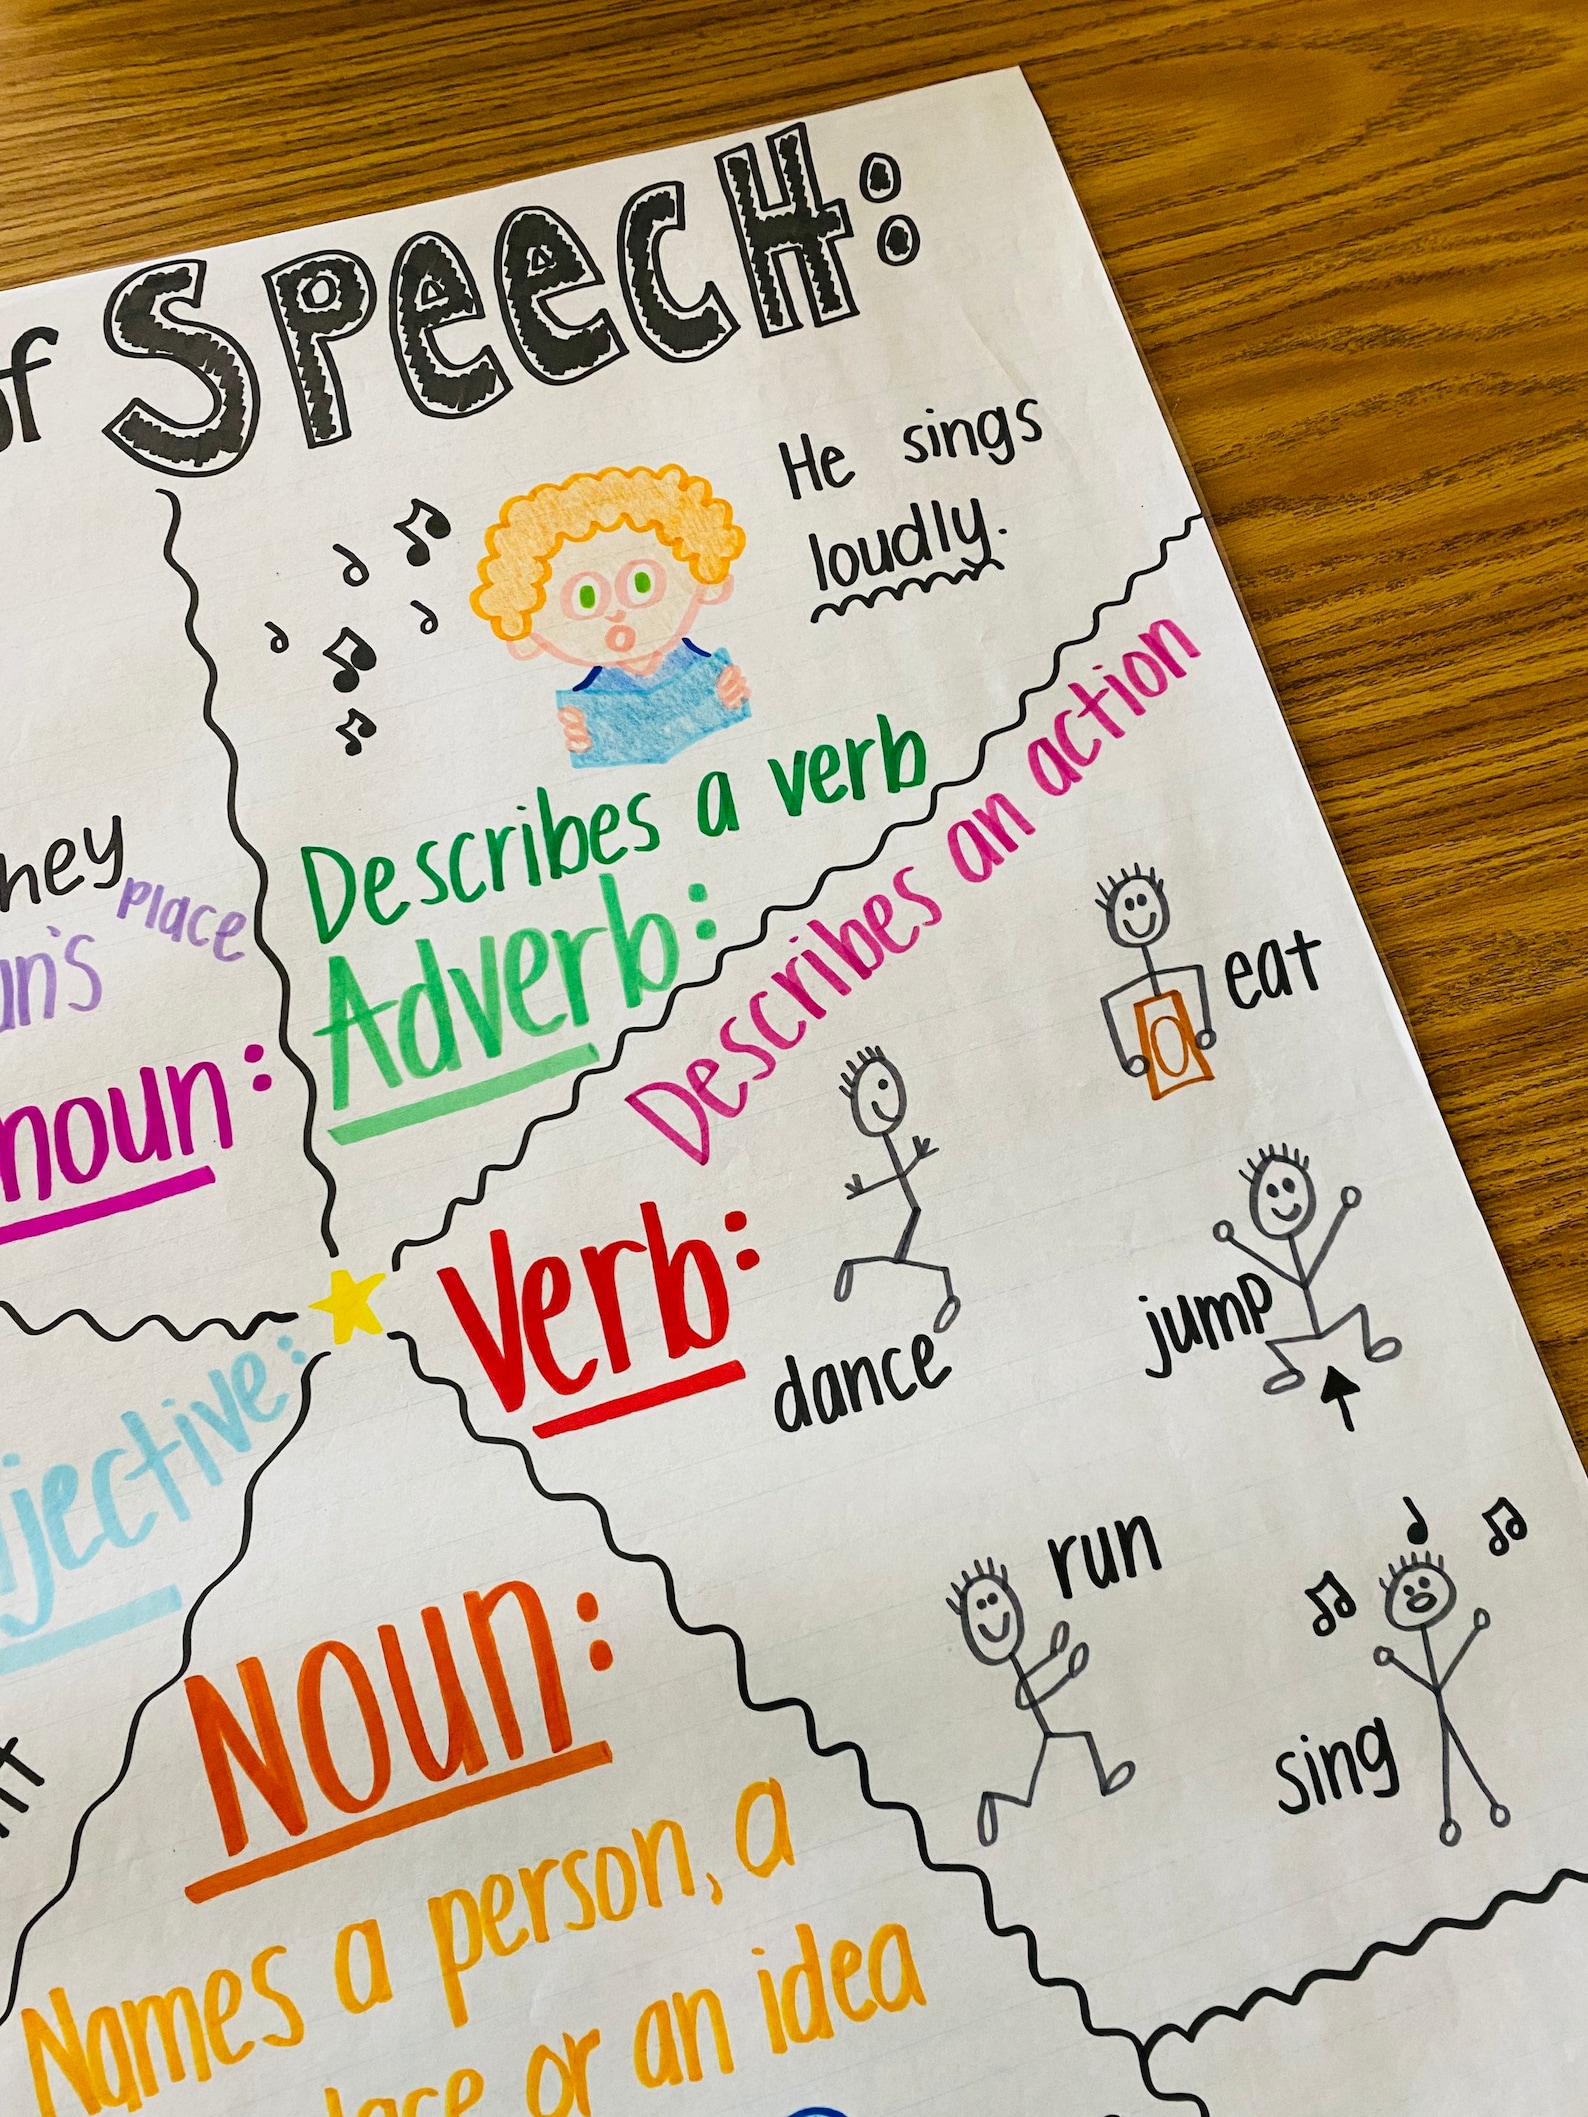 of SPeecH:
He sings
loudly.
Describes a verb
Adverb:
hey
place
un's
noun:
Describes an action
Verb:
eat
dance
jump
run
sing
jective:
Noun:
Names a person, a
lace or an idea